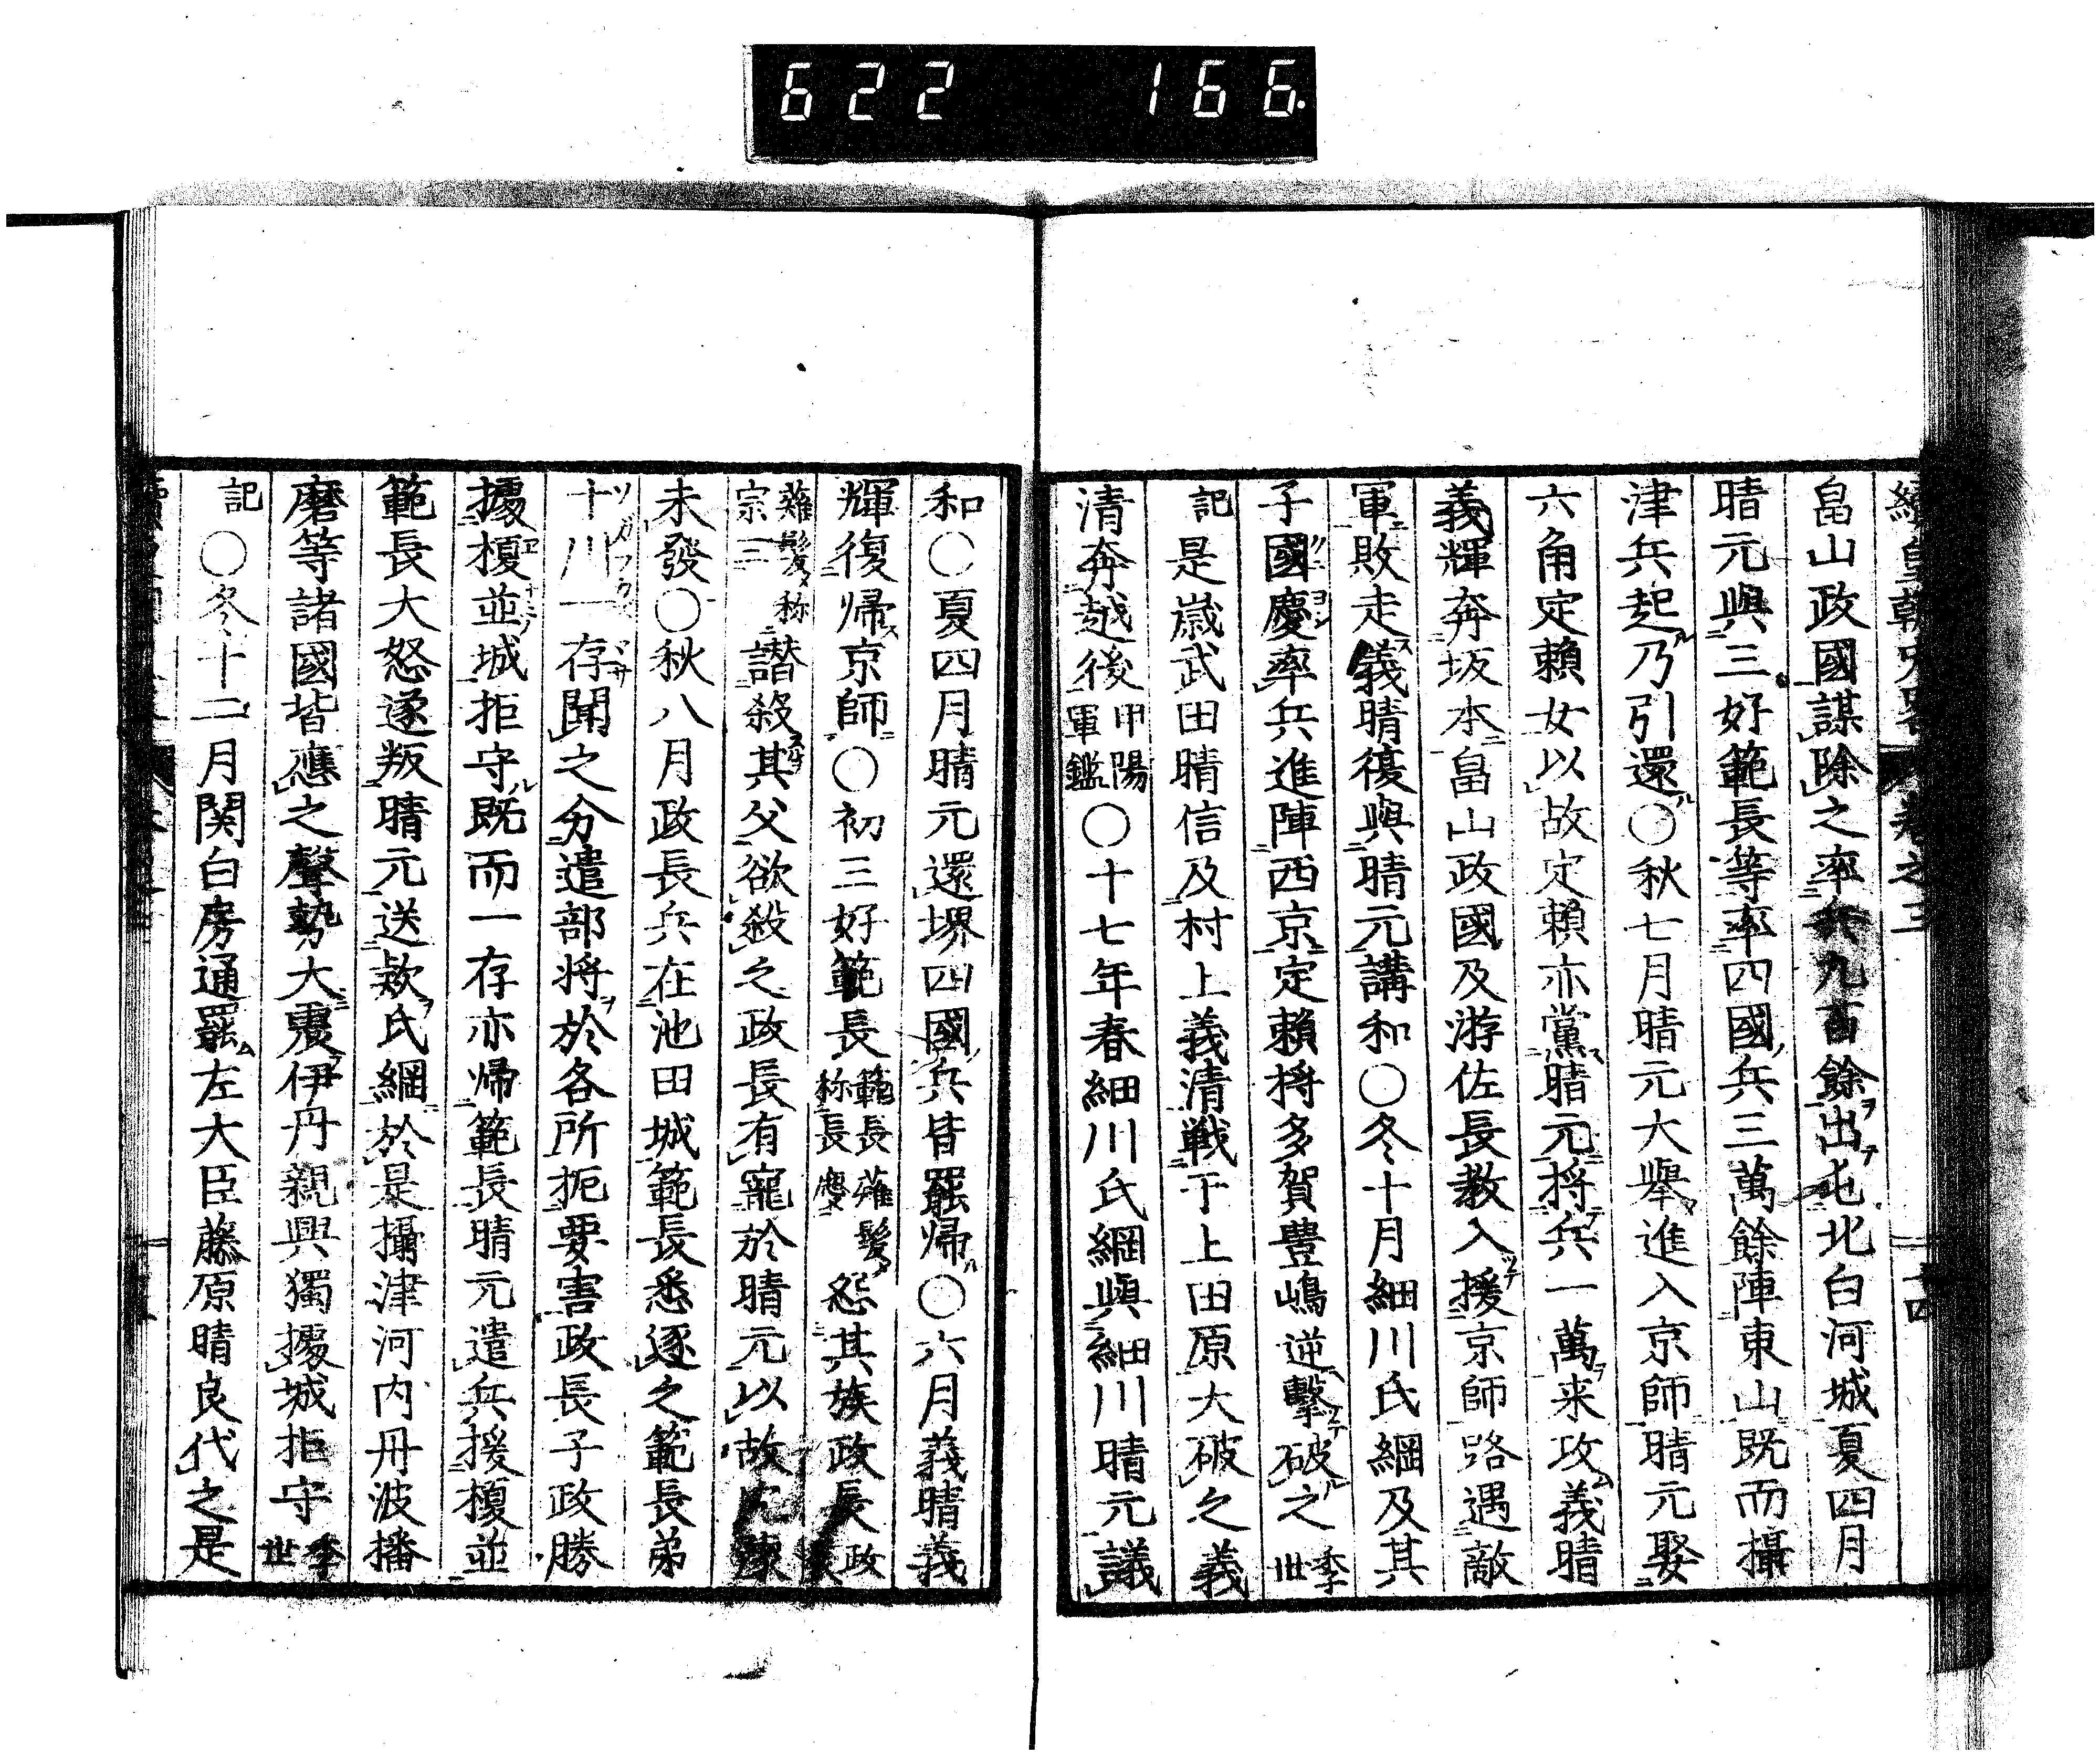 622 166.
畠山政國謀除之率兵九百餘出屯北白河城夏四月
晴元與三好範長等率四國兵三萬餘陣東山既而攝
津兵起乃引還○秋七月晴元大舉進入京師晴元娶
六角定賴女以故定賴亦黨晴元將兵一萬来攻義晴
義輝奔坂本畠山政國及游佐長教入援京師路遇敵
軍敗走義晴復與晴元講和○冬十月細川氏綱及其
子國慶率兵進陣西京定賴將多賀豊嶋逆擊破之季世
記是歳武田晴信及村上義清戦于上田原大破之義
清奔越後甲陽軍鑑○十七年春細川氏綱與細川晴元議
和○夏四月晴元還堺四國兵皆罷帰○六月義晴義
輝復帰京師○初三好範長範長薙髪称長慶怨其族政長政長
薙髪称宗三譖殺其父欲殺之政長有寵於晴元以故
未發○秋八月政長兵在池田城範長悉逐之範長弟
十川一存聞之分遣部将於各所扼要害政長子政勝
據榎並城拒守既而一存亦帰範長晴元遣兵援榎並
範長大怒遂叛晴元送款氏綱於是攝津河内丹波播
磨等諸國皆應之聲勢大震伊丹親興獨據城拒守季世
記○冬十二月関白房通罷左大臣藤原晴良代之是